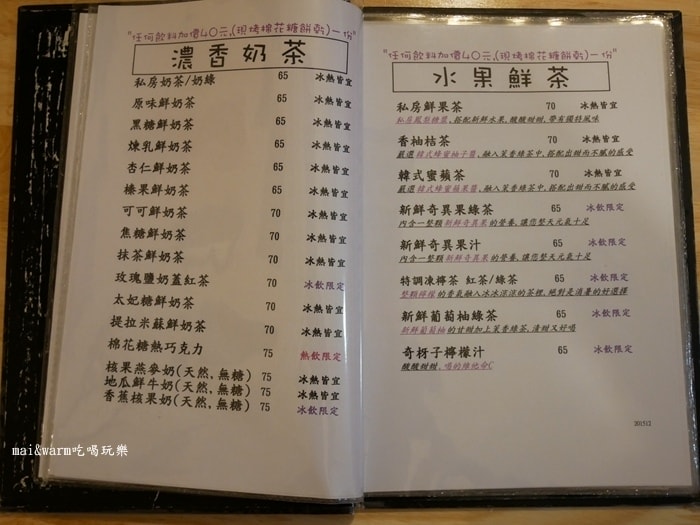 "任何飲料加價40元,(現烤棉花糖餅乾)一份"
濃香奶茶
私房奶茶/奶綠 65 冰熱皆宜
原味鮮奶茶 65 冰熱皆宜
黑糖鮮奶茶 65 冰熱皆宜
煉乳鮮奶茶 65 冰熱皆宜
杏仁鮮奶茶 65 冰熱皆宜
榛果鮮奶茶 65 冰熱皆宜
可可鮮奶茶 70 冰熱皆宜
焦糖鮮奶茶 70 冰熱皆宜
抹茶鮮奶茶 70 冰熱皆宜
玫瑰鹽奶蓋紅茶 70 冰飲限定
太妃糖鮮奶茶 70 冰熱皆宜
提拉米蘇鮮奶茶 70 冰熱皆宜
棉花糖熱巧克力 75 熱飲限定
核果燕麥奶(天然,無糖) 75 冰熱皆宜
地瓜鮮牛奶(天然,無糖) 75 冰熱皆宜
香蕉核果奶(天然,無糖) 75 冰飲限定
"任何飲料加價40元,(現烤棉花糖餅乾)一份"
水果鮮茶
私房鮮果茶 70 冰熱皆宜
私房鳳梨糖醬、搭配新鮮水果、酸酸甜甜、帶有獨特風味
香柚桔茶 70 冰熱皆宜
嚴選韓式蜂蜜柚子醬、融入茉香綠茶中、搭配出甜而不膩的感受
韓式蜜蘋茶 70 冰熱皆宜
嚴選韓式蜂蜜蘋果醬、融入茉香綠茶中、搭配出甜而不膩的感受
新鮮奇異果綠茶 65 冰飲限定
內含一整顆新鮮奇異果的營養、讓您整天元氣十足
新鮮奇異果汁 65 冰飲限定
內含一整顆新鮮奇異果的營養、讓您整天元氣十足
特調凍檸茶 紅茶/綠茶 65 冰飲限定
整顆檸檬的香氣融入冰冰涼涼的茶裡、絕對是消暑的好選擇
新鮮葡萄柚綠茶 65 冰飲限定
新鮮葡萄柚的甘甜加上茉香綠茶、清甜又好喝
奇枒子檸檬汁 65 冰飲限定
酸酸甜甜、喝的維他命C
201512
mai&warm吃喝玩樂